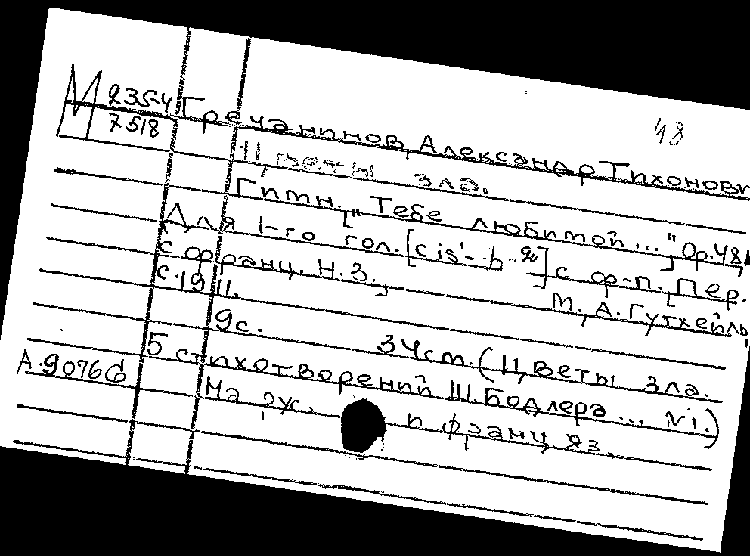 48
М 2354
7518
Гречанинов, Александр Тихонови
Цветы зла.
Гимн. ["Тебе любимой...", Ор. 48,
Для 1-го гол. [cis'-b"] с ф-п. [Пер.
с франц. Н.З., М., А. Гутхейль,
с. 1911.
9с. 34см. (Цветы зла.
5 стихотворений Ш. Бодлера... №1.)
А.9076б
На рус. и франц яз.